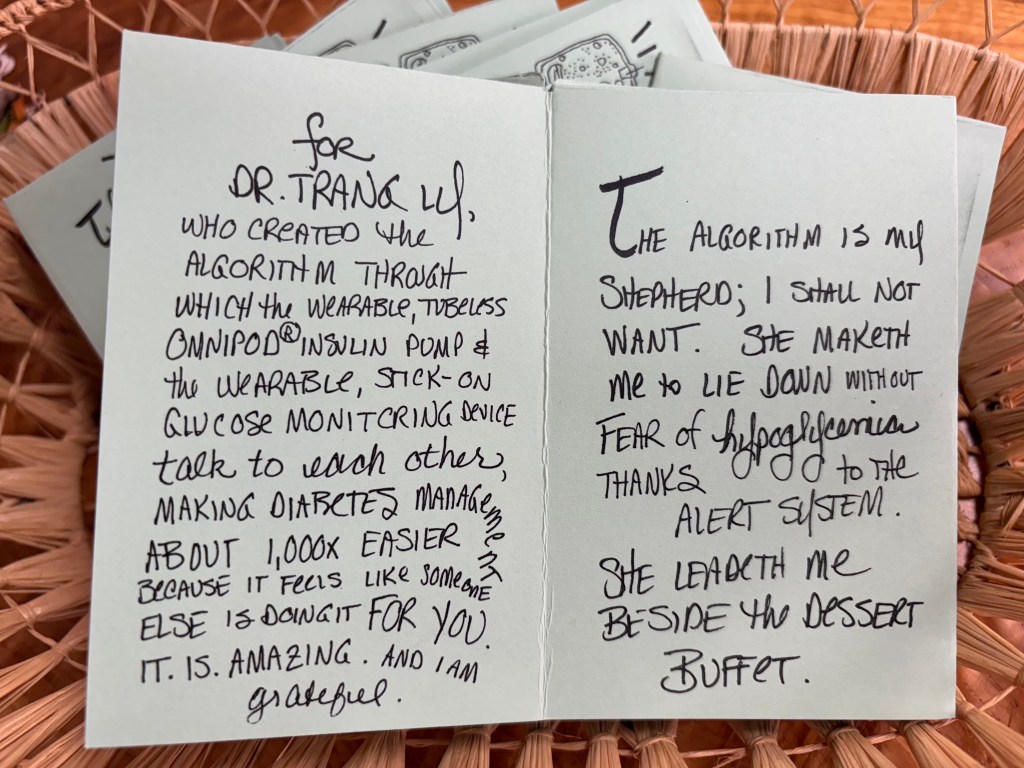 for
DR. TRANG LY,
WHO CREATED the
ALGORITHM THROUGH
WHICH the WEARABLE, TUBELESS
OMNIPOD® INSULIN PUMP &
the WEARABLE, STICK-ON
GLUCOSE MONITORING DEVICE
talk to each other,
MAKING DIABETES MANAGEMENT
ABOUT 1,000x EASIER
BECAUSE IT FEELS LIKE SOMEONE
ELSE IS DOING IT FOR YOU.
IT. IS. AMAZING. AND I AM
grateful.
THE ALGORITHM IS MY
SHEPHERD; I SHALL NOT
WANT. SHE MAKETH
Me to LIE DOWN WITHOUT
FEAR of hypoglycemia
THANKS TO THE
ALERT SYSTEM.
SHE LEADETH Me
BESIDE the DESSERT
BUFFET.